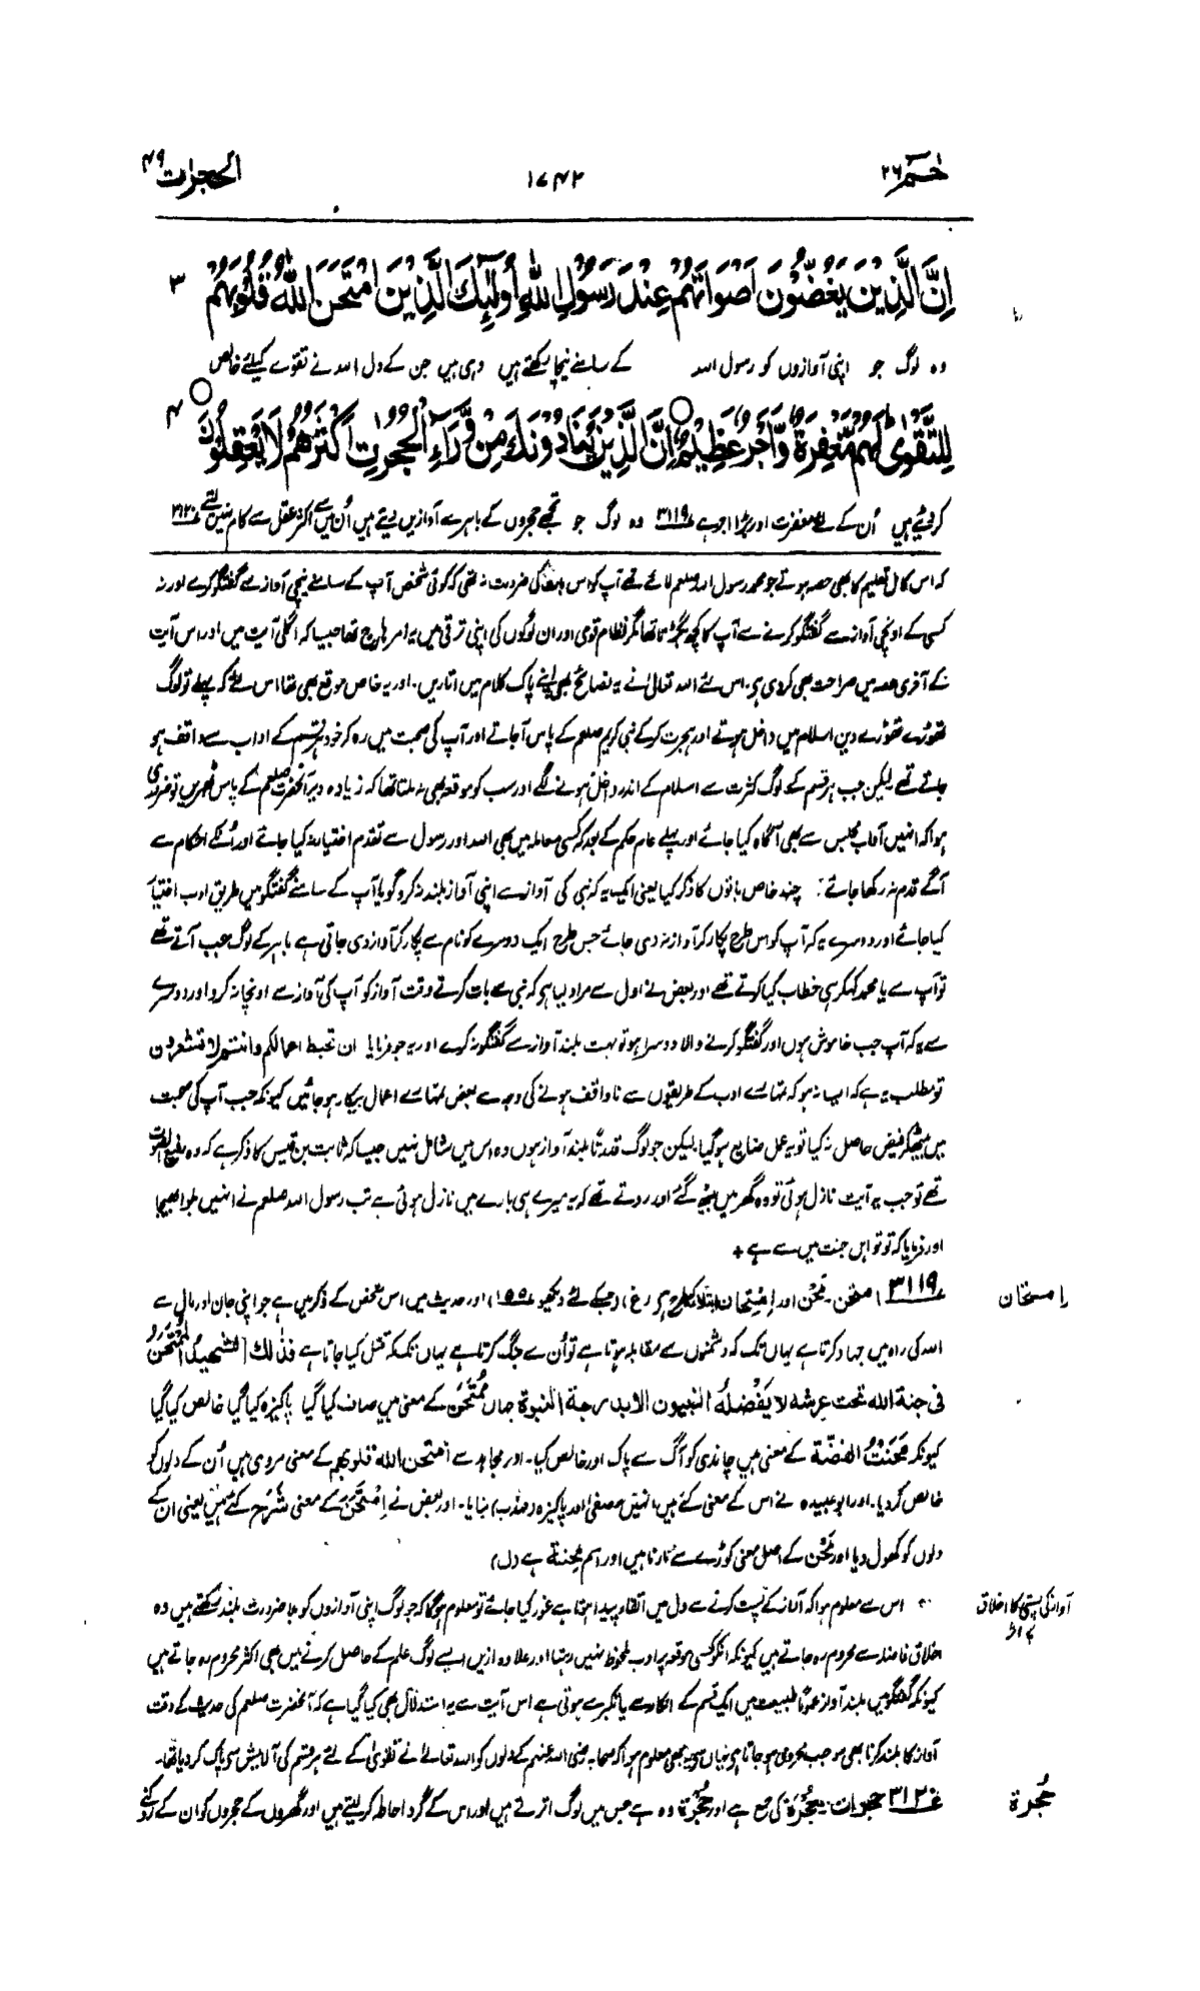 حٰمٓ ۲۶
۱۷۴۲
الحجرات ۴۹
اِنَّ الَّذِیْنَ یَغُضُّوْنَ اَصْوَاتَهُمْ عِنْدَ رَسُوْلِ اللّٰهِ اُولٰٓئِكَ الَّذِیْنَ امْتَحَنَ اللّٰهُ قُلُوْبَهُمْ ۳
وہ لوگ جو اپنی آوازوں کو رسول اللہ کے سامنے نیچا رکھتے ہیں وہی ہیں جن کے دل اللہ نے تقوے کیلئے خالص
لِلتَّقْوٰی لَهُمْ مَّغْفِرَةٌ وَّاَجْرٌ عَظِیْمٌ اِنَّ الَّذِیْنَ یُنَادُوْنَكَ مِنْ وَّرَآءِ الْحُجُرٰتِ اَكْثَرُهُمْ لَا یَعْقِلُوْنَ ۴
کردئیے ہیں اُن کے لئے مغفرت اور بڑا اجر ہے ۳۱۱۹ وہ لوگ جو تجھے حجروں کے باہر سے آوازیں دیتے ہیں اُن میں سے اکثر عقل سے کام نہیں لیتے ۳۱۲۰
کہ اس کامل تعلیم کا بھی حصہ ہوتے جو محمد رسول اللہ صلعم لائے تھے آپ کو اس کی ضرورت نہ تھی کہ کوئی شخص آپ کے سامنے نیچی آواز سے گفتگو کرے اور نہ
کسی کے اونچی آواز سے گفتگو کرنے سے آپ کا کچھ بگڑتا تھا مگر نظام قومی اور ان لوگوں کی اپنی ترقی میں یہ امر ہارج تھا جیسا کہ اگلی آیت میں اور اس آیت
کے آخری حصہ میں صراحت بھی کردی ہے، اس لئے اللہ تعالیٰ نے یہ نصائح بھی اپنے پاک کلام میں اتاریں۔ اور یہ خاص موقع بھی تھا اس لئے کہ پہلے تو لوگ
تھوڑے تھوڑے دین اسلام میں داخل ہوتے اور ہجرت کرکے نبی کریم صلعم کے پاس آجاتے اور آپ کی صحبت میں رہ کر خود ہر قسم کے اداب سے واقف ہو
جاتے تھے لیکن جب ہر قسم کے لوگ کثرت سے اسلام کے اندر داخل ہونے لگے اور سب کو موقعہ بھی نہ ملتا تھا کہ زیادہ دیر آنحضرت صلعم کے پاس ٹھہریں تو ضروری
ہوا کہ انہیں آداب مجلس سے بھی آگاہ کیا جائے اور پہلے عام حکم کے بعد کہ کسی معاملہ میں بھی اللہ اور رسول سے تقدم اختیار نہ کیا جائے اور اُنکے احکام سے
آگے قدم نہ رکھا جائے، چند خاص باتوں کا ذکر کیا یعنی ایک یہ کہ نبی کی آواز سے اپنی آواز بلند نہ کرو گویا آپ کے سامنے گفتگو میں طریق ادب اختیار
کیا جائے اور دوسرے یہ کہ آپ کو اس طرح پکار کر آواز نہ دی جائے جس طرح ایک دوسرے کو نام سے پکار کر آواز دی جاتی ہے باہر کے لوگ جب آتے تھے
تو آپ سے یا محمد کہکر ہی خطاب کیا کرتے تھے اور بعض نے اول سے مراد لیا ہے کہ نبی سے بات کرتے وقت آواز کو آپ کی آواز سے اونچا نہ کرو اور دوسرے
سے یہ کہ آپ جب خاموش ہوں اور گفتگو کرنے والا دوسرا ہو تو بہت بلند آواز سے گفتگو نہ کرے اور یہ جو فرمایا ان تحبط اعمالکم وانتم لا تشعرون
تو مطلب یہ ہے کہ ایسا نہ ہو کہ تمہارے ادب کے طریقوں سے ناواقف ہونے کی وجہ سے بعض تمہارے اعمال بیکار ہوجائیں کیونکہ جب آپ کی صحبت
میں بیٹھکر فیض حاصل نہ کیا تو یہ عمل ضایع ہوگیا، لیکن جو لوگ قدرتاً بلند آواز ہوں وہ اس میں شامل نہیں جیسا کہ ثابت بن قیس کا ذکر ہے کہ وہ رفیع الصوت
تھے تو جب یہ آیت نازل ہوئی تو وہ گھر میں بیٹھ گئے اور روتے تھے کہ یہ میرے ہی بارے میں نازل ہوئی ہے تب رسول اللہ صلعم نے انہیں بلوا بھیجا
اور فرمایا کہ تو تو اہل جنت میں سے ہے +
۳۱۱۹ امتحن۔ مَحْن اور اِمْتِحان ابتلا کی طرح ہے (غ)، (جسکے لئے دیکھو ۱۵۵)، اور حدیث میں اس شخص کے ذکر میں ہے جو اپنی جان اور مال سے
امتحان
اللہ کی راہ میں جہاد کرتا ہے یہاں تک کہ دشمنوں سے مقابلہ ہوتا ہے تو اُن سے جنگ کرتا ہے یہاں تک کہ قتل کیا جاتا ہے فذٰلك الشھید المُمْتَحَن
فی جنة اللہ تحت عرشه لا یَفْضُلُه النبیون الا بدرجة النبوة جہاں مُمْتَحَن کے معنی ہیں صاف کیا گیا پاکیزہ کیا گیا خالص کیا گیا
کیونکہ مَحَنْتُ الفضّة کے معنی ہیں چاندی کو آگ سے پاک اور خالص کیا۔ اور مجاہد سے امتحن اللہ قلوبھم کے معنی مروی ہیں اُن کے دلوں کو
خالص کردیا، اور ابو عبیدہ نے اس کے معنی کئے ہیں، انہیں مصفیٰ اور پاکیزہ (مہذب) بنایا۔ اور بعض نے اِمْتَحَنَ کے معنی شَرَحَ کئے ہیں یعنی ان کے
دلوں کو کھول دیا اور مَحْن کے اصل معنی کوڑے سے مارنا ہیں اور اسم مِحْنة ہے (ل)
اس سے معلوم ہوا کہ آواز کے پست کرنے سے دل میں اتقا پیدا ہوتا ہے غور کیا جائے تو معلوم ہوگا کہ جو لوگ اپنی آوازوں کو بلا ضرورت بلند رکھتے ہیں وہ
آواز کی پستی کا اخلاق پر اثر
اخلاق فاضلہ سے محروم رہ جاتے ہیں کیونکہ انکو کسی موقعہ پر ادب ملحوظ نہیں رہتا اور علاوہ ازیں ایسے لوگ علم کے حاصل کرنے میں بھی اکثر محروم رہ جاتے ہیں
کیونکہ گفتگو میں بلند آواز عموماً طبیعت میں ایک قسم کے انکار سے یا تکبر سے ہوتی ہے اس آیت سے یہ استدلال بھی کیا گیا ہے کہ آنحضرت صلعم کی حدیث کے وقت
آواز کا بلند کرنا بھی موجب محرومی ہوجاتا ہے یہاں سے یہ بھی معلوم ہوا کہ صحابہ رضی اللہ عنہم کے دلوں کو اللہ تعالےٰ نے تقویٰ کے لئے ہر قسم کی آلایش سے پاک کردیا تھا۔
۳۱۲۰ حجرات۔ حُجْرَة کی جمع ہے اور حُجْرَة وہ ہے جس میں لوگ اترتے ہیں اور اس کے گرد احاطہ کرلیتے ہیں اور گھروں کے حجروں کو ان کے روکنے
حُجرة